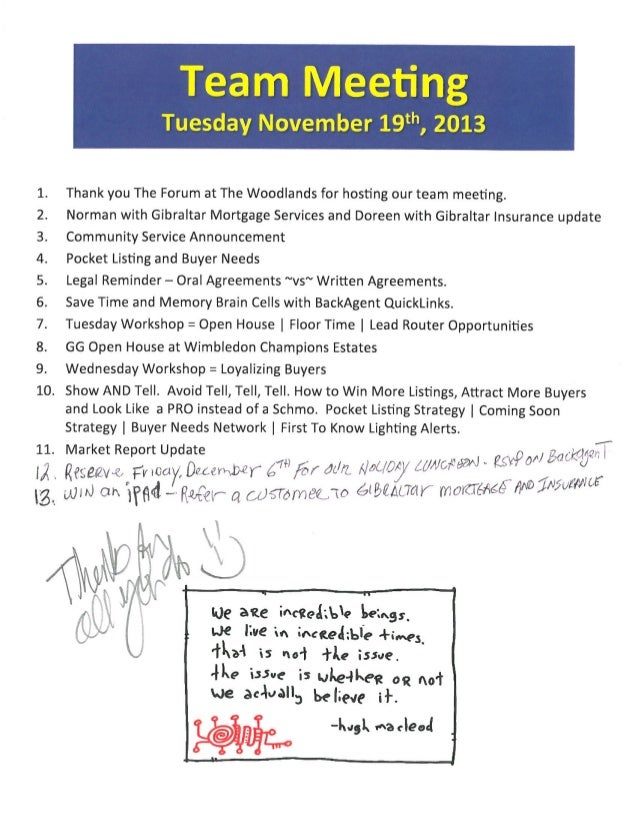 Team Meeting
Tuesday November 19th, 2013
1. Thank you The Forum at The Woodlands for hosting our team meeting.
2. Norman with Gibraltar Mortgage Services and Doreen with Gibraltar Insurance update
3. Community Service Announcement
4. Pocket Listing and Buyer Needs
5. Legal Reminder – Oral Agreements ~vs~ Written Agreements.
6. Save Time and Memory Brain Cells with BackAgent QuickLinks.
7. Tuesday Workshop = Open House | Floor Time | Lead Router Opportunities
8. GG Open House at Wimbledon Champions Estates
9. Wednesday Workshop = Loyalizing Buyers
10. Show AND Tell. Avoid Tell, Tell, Tell. How to Win More Listings, Attract More Buyers
and Look Like a PRO instead of a Schmo. Pocket Listing Strategy | Coming Soon
Strategy | Buyer Needs Network | First To Know Lighting Alerts.
11. Market Report Update
12. Reserve Friday, December 6TH For our Holiday Luncheon - RSVP on BackAgent
13. WIN an iPad – Refer a customer to Gibraltar Mortgage and Insurance
Thanks for
all you do
We are incredible beings.
We live in incredible times.
that is not the issue.
the issue is whether or not
we actually believe it.
-hugh macleod